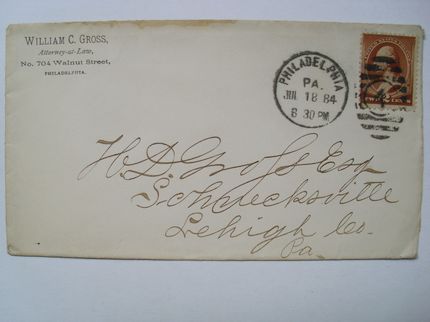 WILLIAM C. GROSS,
Attorney-at-Law,
No. 704 Walnut Street,
PHILADELPHIA.
PHILADELPHIA
PA.
JUL 18 84
8 30 PM
H. D. Gross Esq
Schnecksville
Lehigh Co.
Pa.